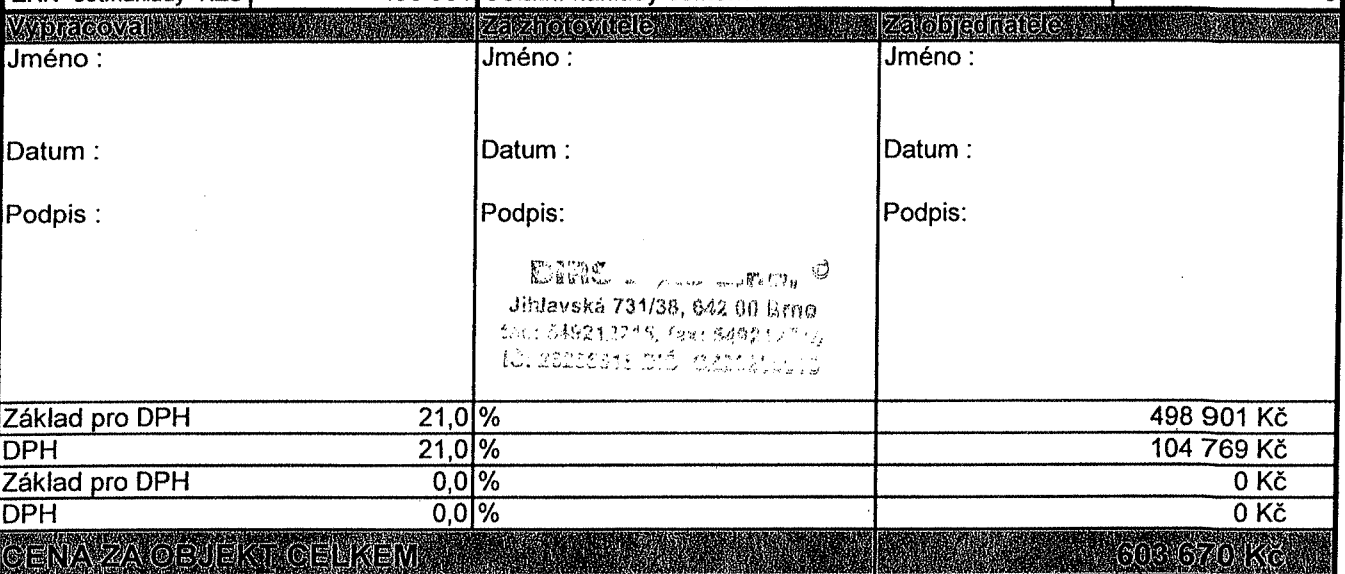 Vypracoval Za zhotovitele Za objednatele
Jméno : Jméno : Jméno :
Datum : Datum : Datum :
Podpis : Podpis: Podpis:
Jihlavská 731/38, 642 00 Brno
Základ pro DPH 21,0 % 498 901 Kč
DPH 21,0 % 104 769 Kč
Základ pro DPH 0,0 % 0 Kč
DPH 0,0 % 0 Kč
CENA ZA OBJEKT CELKEM 603 670 Kč